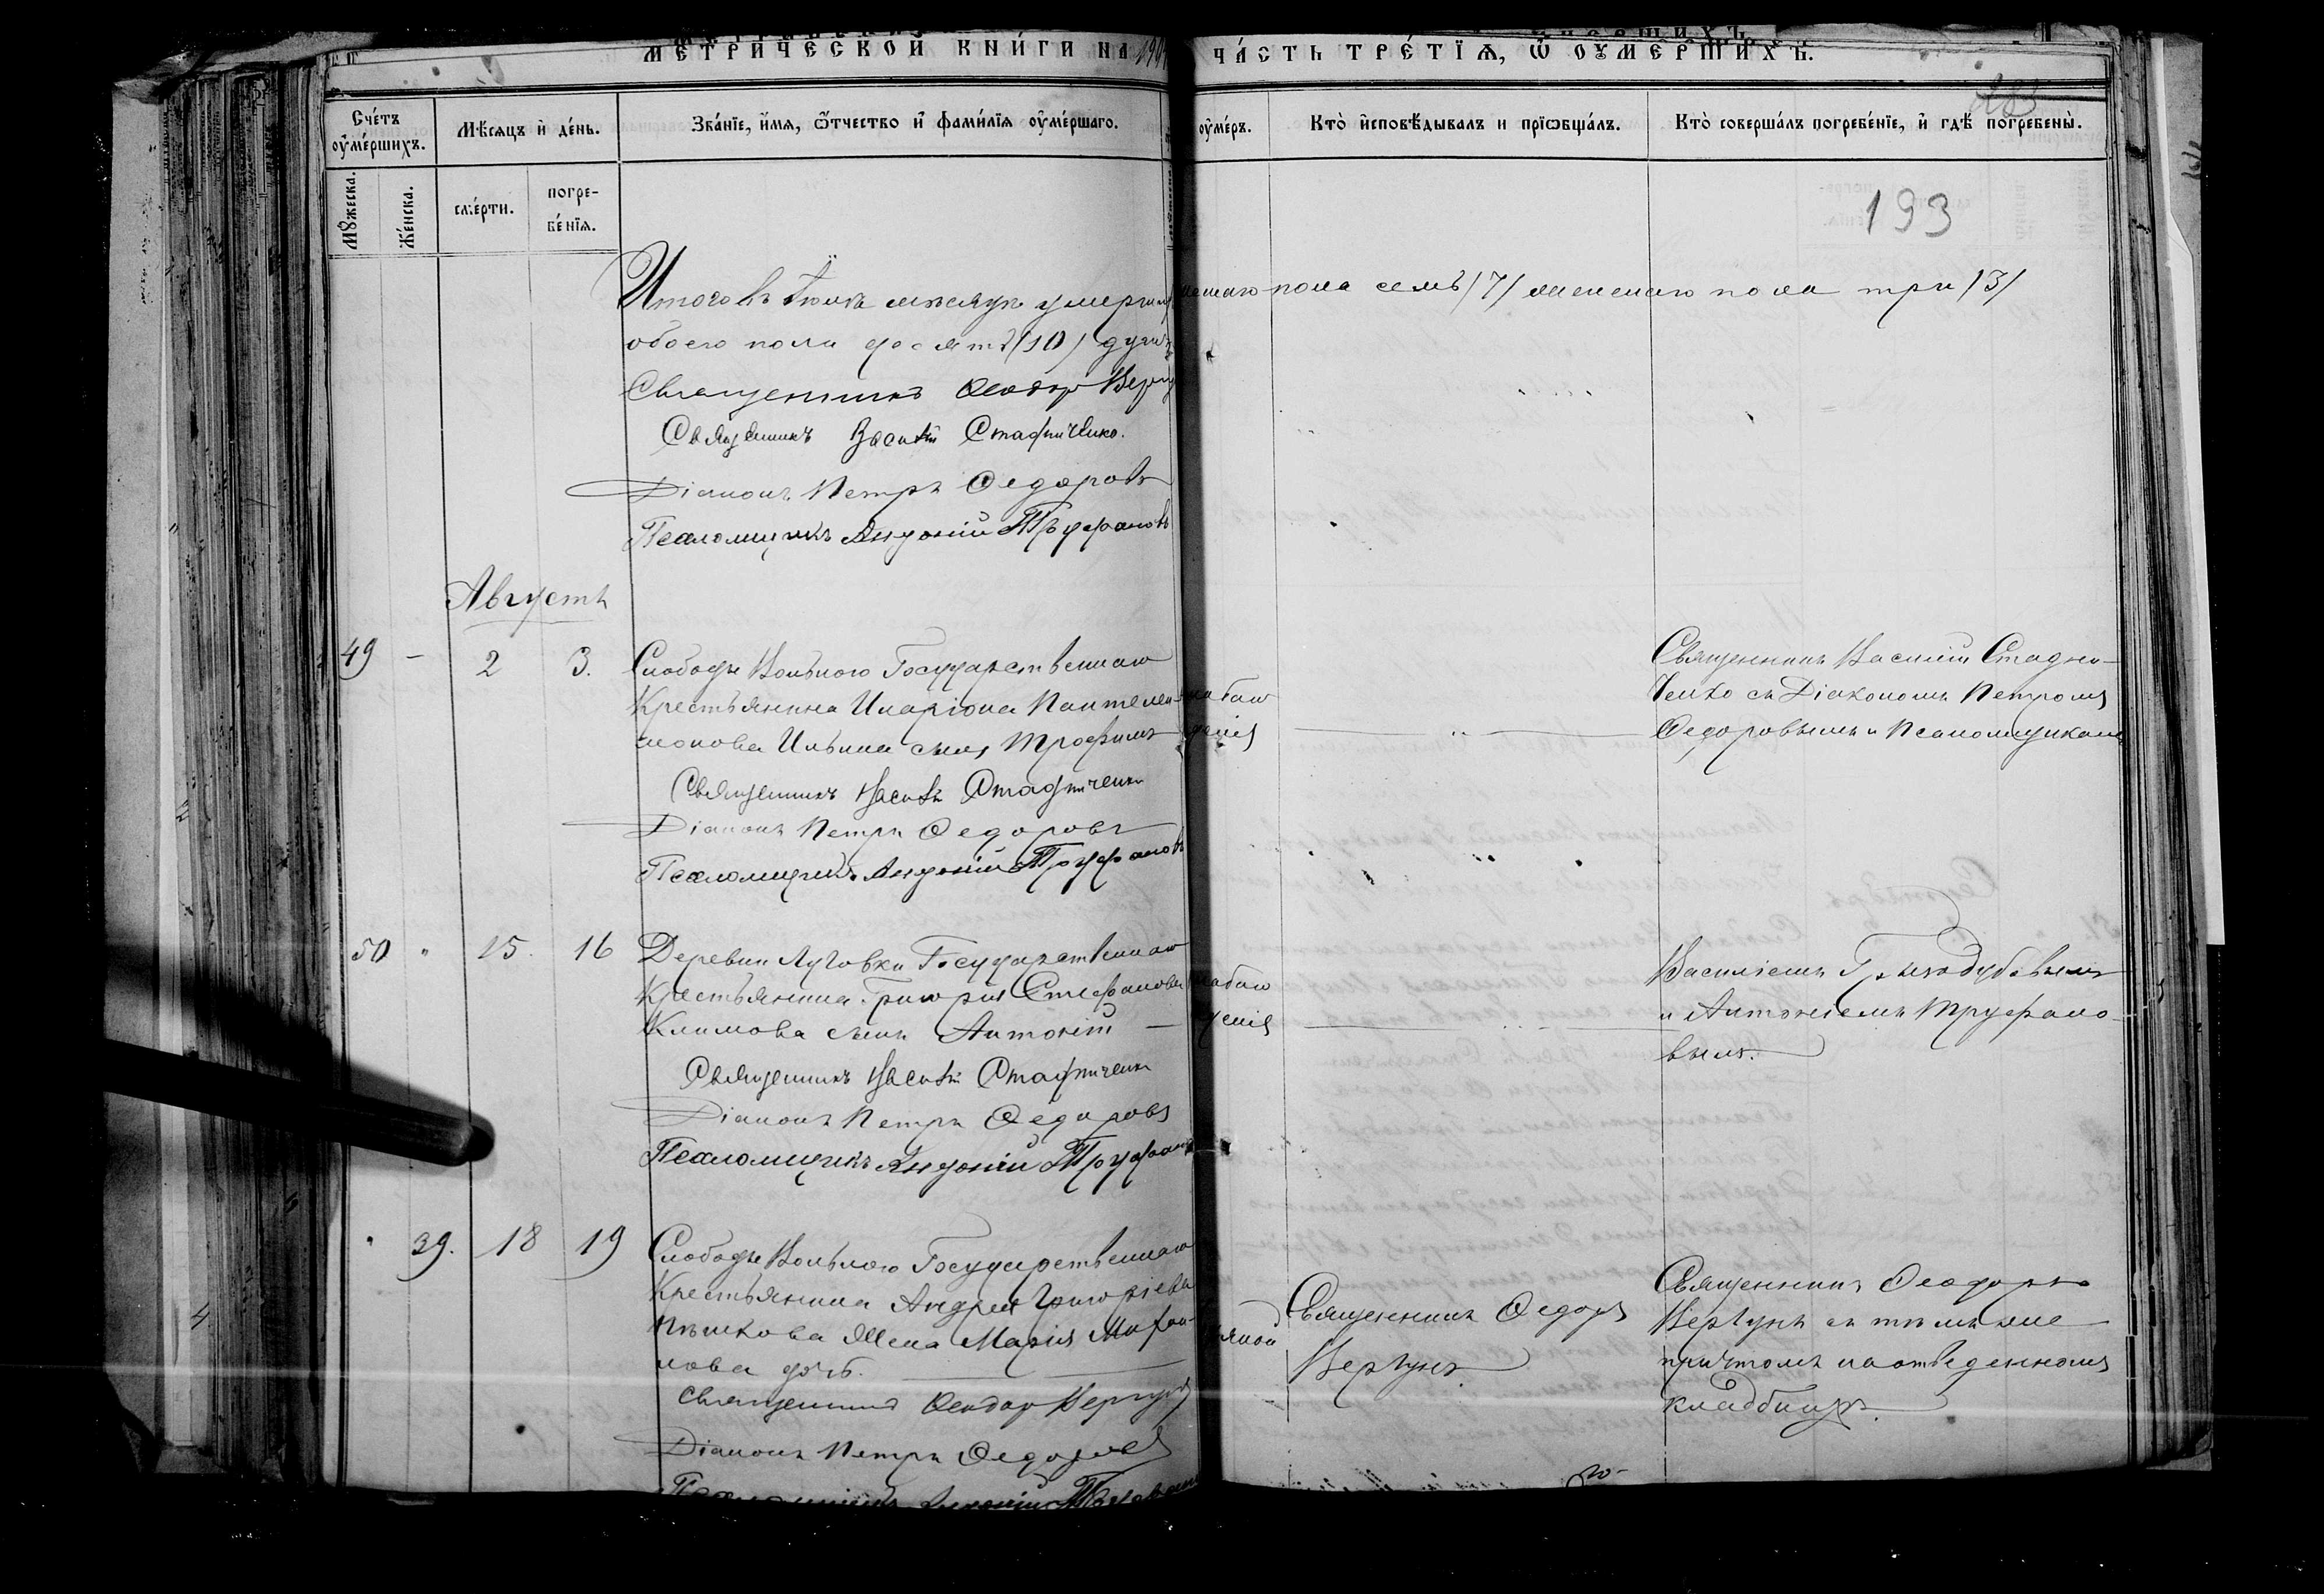 МЕТРИЧЕСКОЙ КНИГИ НА 190
ЧАСТЬ ТРЕТІЯ, Ѡ ОУМЕРШИХЪ.
Счетъ оумершихъ.
Мѣсяцъ и день.
Званіе, имя, ѿчество и фамилія оумершаго.
оумеръ.
Кто исповѣдывалъ и пріѡбщалъ.
Кто совершалъ погребеніе, и гдѣ погребены.
Мужеска.
Женска.
смерти.
погре-
бенія.
193
Итого въ Іюлѣ мѣсяцѣ умерло мужескаго пола семь /7/ женскаго пола три /3/
обоего пола десять (10) душъ
Священникъ Ѳеодоръ Вергунъ
Священникъ Василій Стадниченко.
Діаконъ Петръ Ѳедоровъ
Псаломщикъ Андоній Труфановъ
Августъ
49 – 2 3.
Слободы Вольнаго Государственнаго
Крестьянина Иларіона Пантелеи-
монова Ильина сынъ Трофимъ
Священникъ Василій Стадниченко
Діаконъ Петръ Ѳедоровъ
Псаломщикъ Андоній Труфановъ
Священникъ Василій Стадни-
ченко съ Діакономъ Петромъ
Ѳедоровымъ и Псаломщиками
50 " 15. 16
Деревни Луговки Государственнаго
Крестьянина Григорія Стефанова
Климова сынъ Антоній
Священникъ Василій Стадниченко
Діаконъ Петръ Ѳедоровъ
Псаломщикъ Андоній Труфановъ
Василіемъ Гризодубовымъ
и Антоніемъ Труфано-
вымъ.
" 39. 18 19
Слободы Вольнаго Государственнаго
Крестьянина Андрея Григоріева
жена Марія
нова дочь.
Священникъ Ѳеодоръ Вергунъ
Діаконъ Петръ Ѳедоровъ
Псаломщикъ Андоній Труфановъ
Священникъ Ѳедоръ
Вергунъ.
Священникъ Ѳеодоръ
Вергунъ съ тѣмъ же
причтомъ на отведенномъ
кладбищѣ.